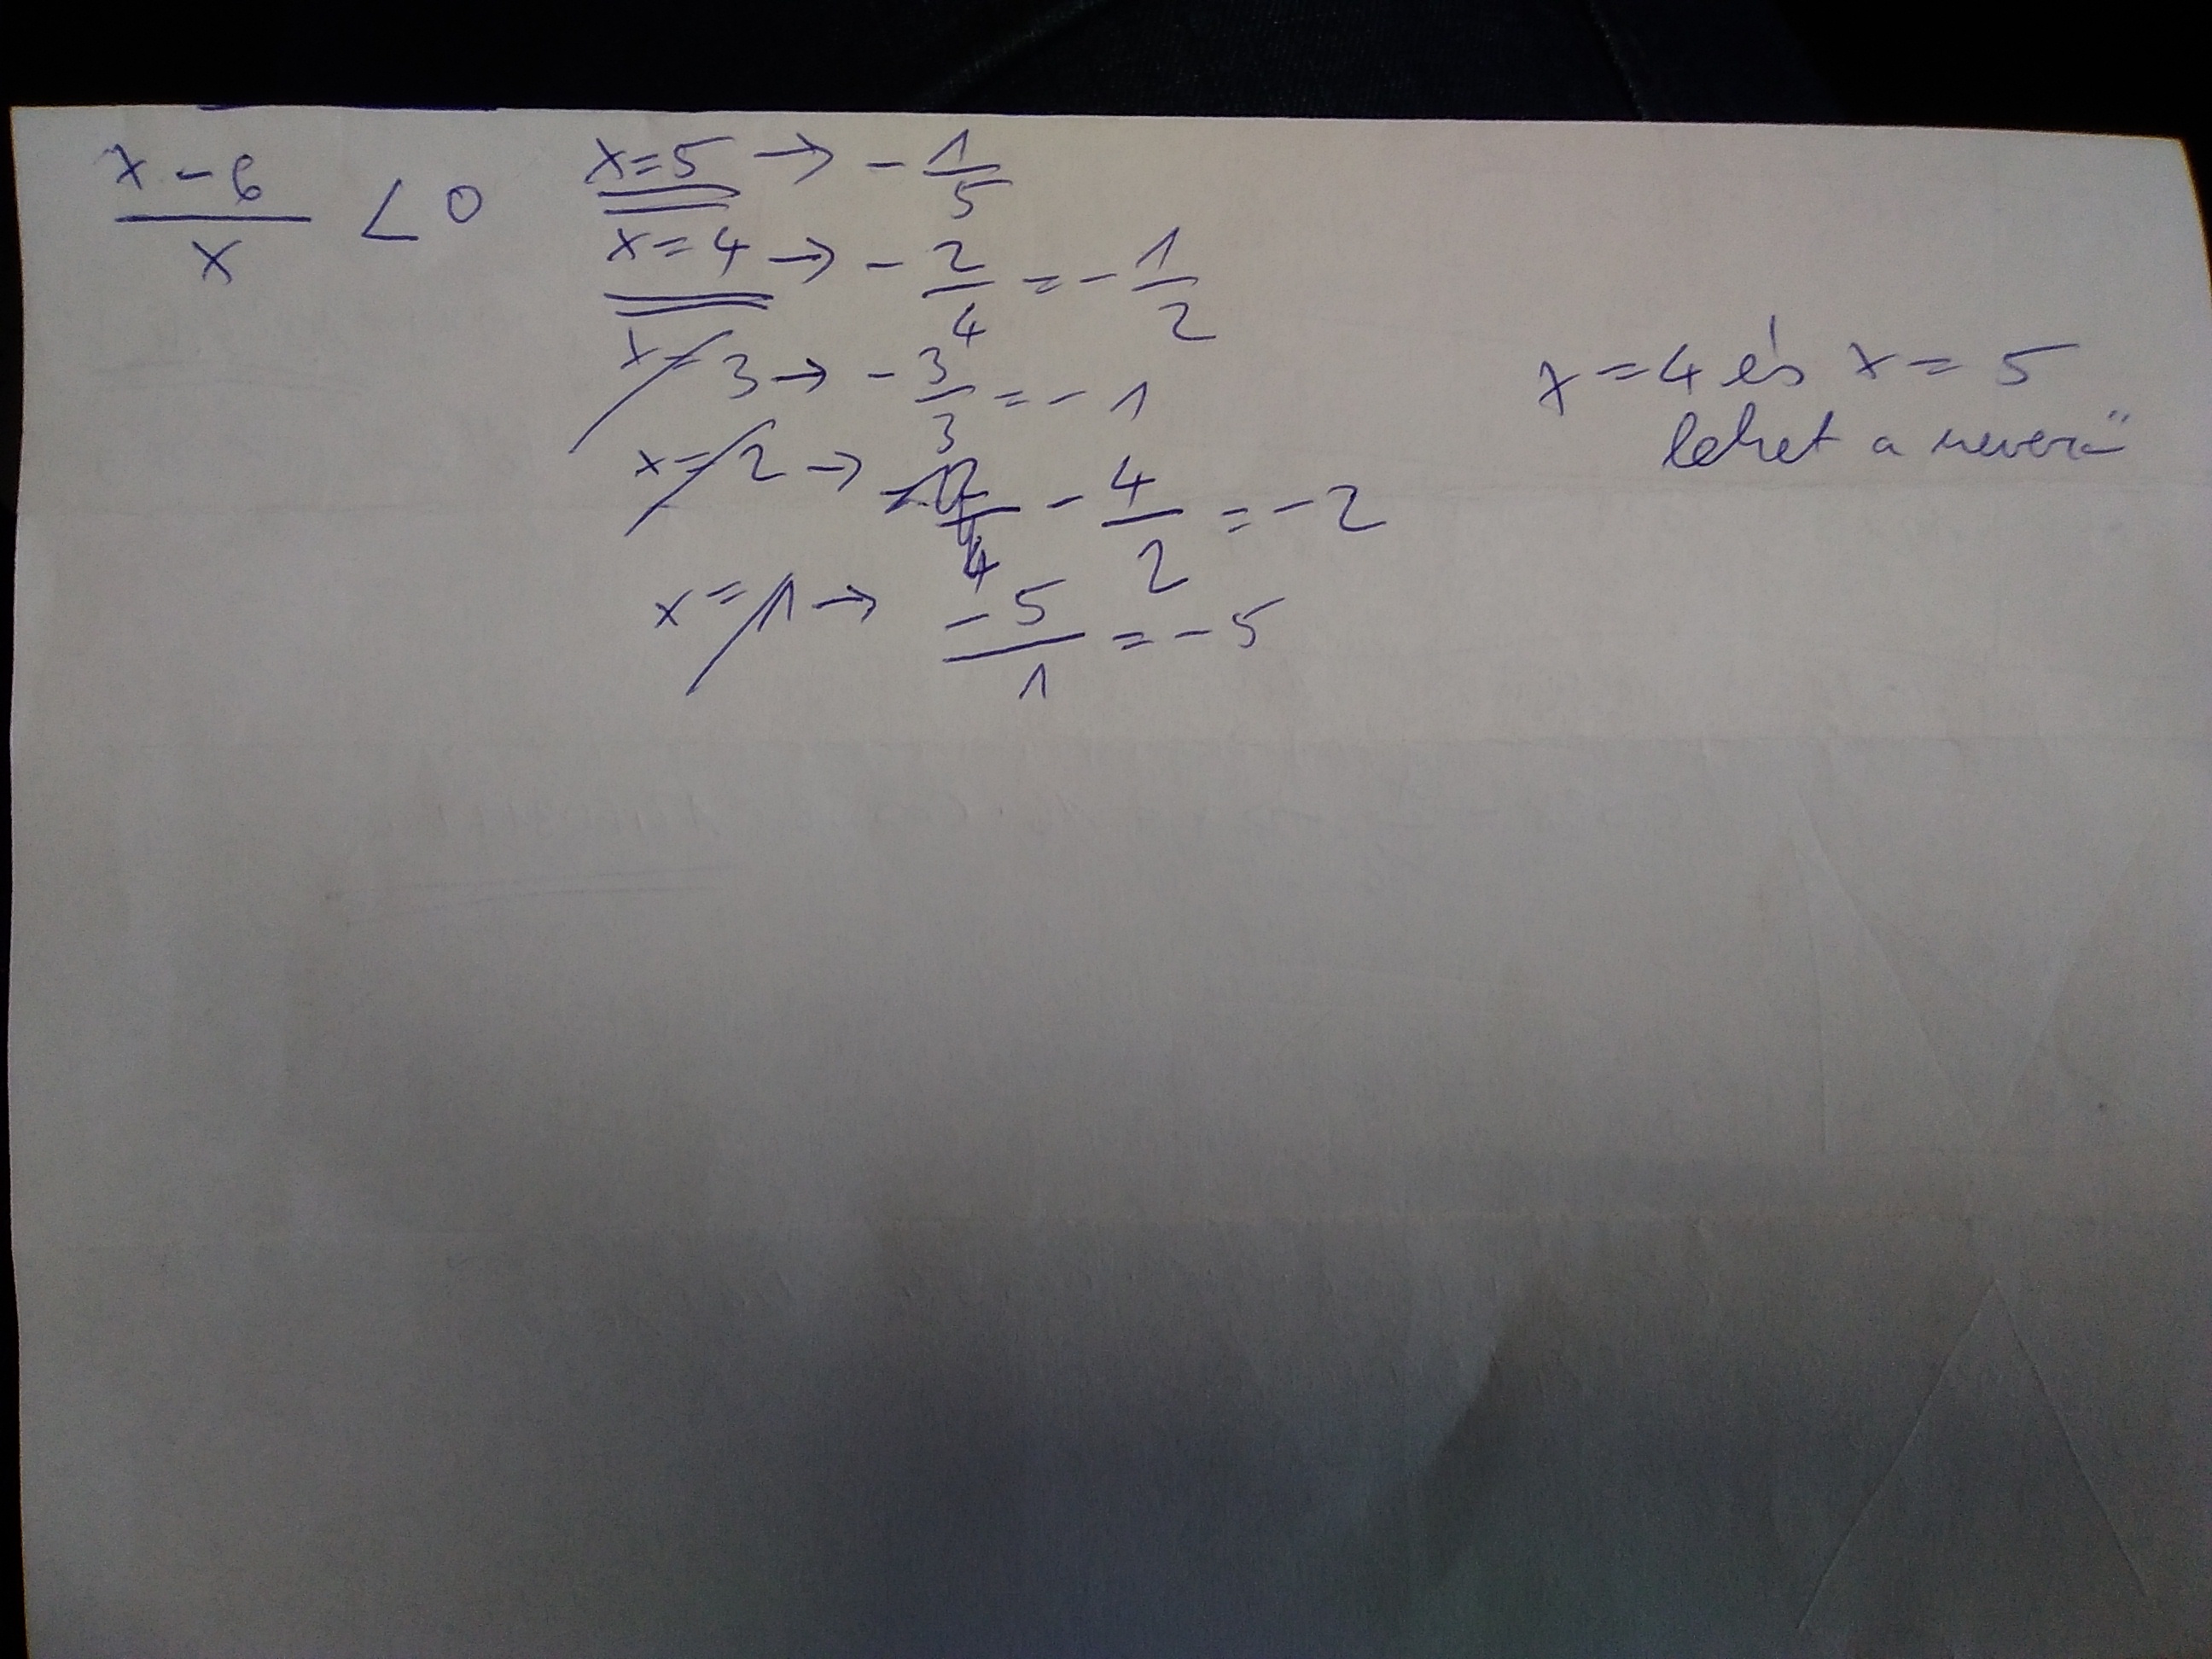 x-6/x <0
x=5 → -1/5
x=4 → -2/4 = -1/2
x=3 → -3/3 = -1
x=2 → -4/2 = -2
x=1 → -5/1 = -5
x=4 és x=5
lehet a nevező